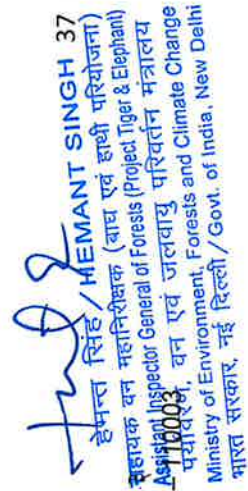 हेमन्त सिंह / HEMANT SINGH 37
सहायक वन महानिरीक्षक (बाघ एवं हाथी परियोजना)
Assistant Inspector General of Forests (Project Tiger & Elephant)
110003
पर्यावरण, वन एवं जलवायु परिवर्तन मंत्रालय
Ministry of Environment, Forests and Climate Change
भारत सरकार, नई दिल्ली / Govt. of India, New Delhi